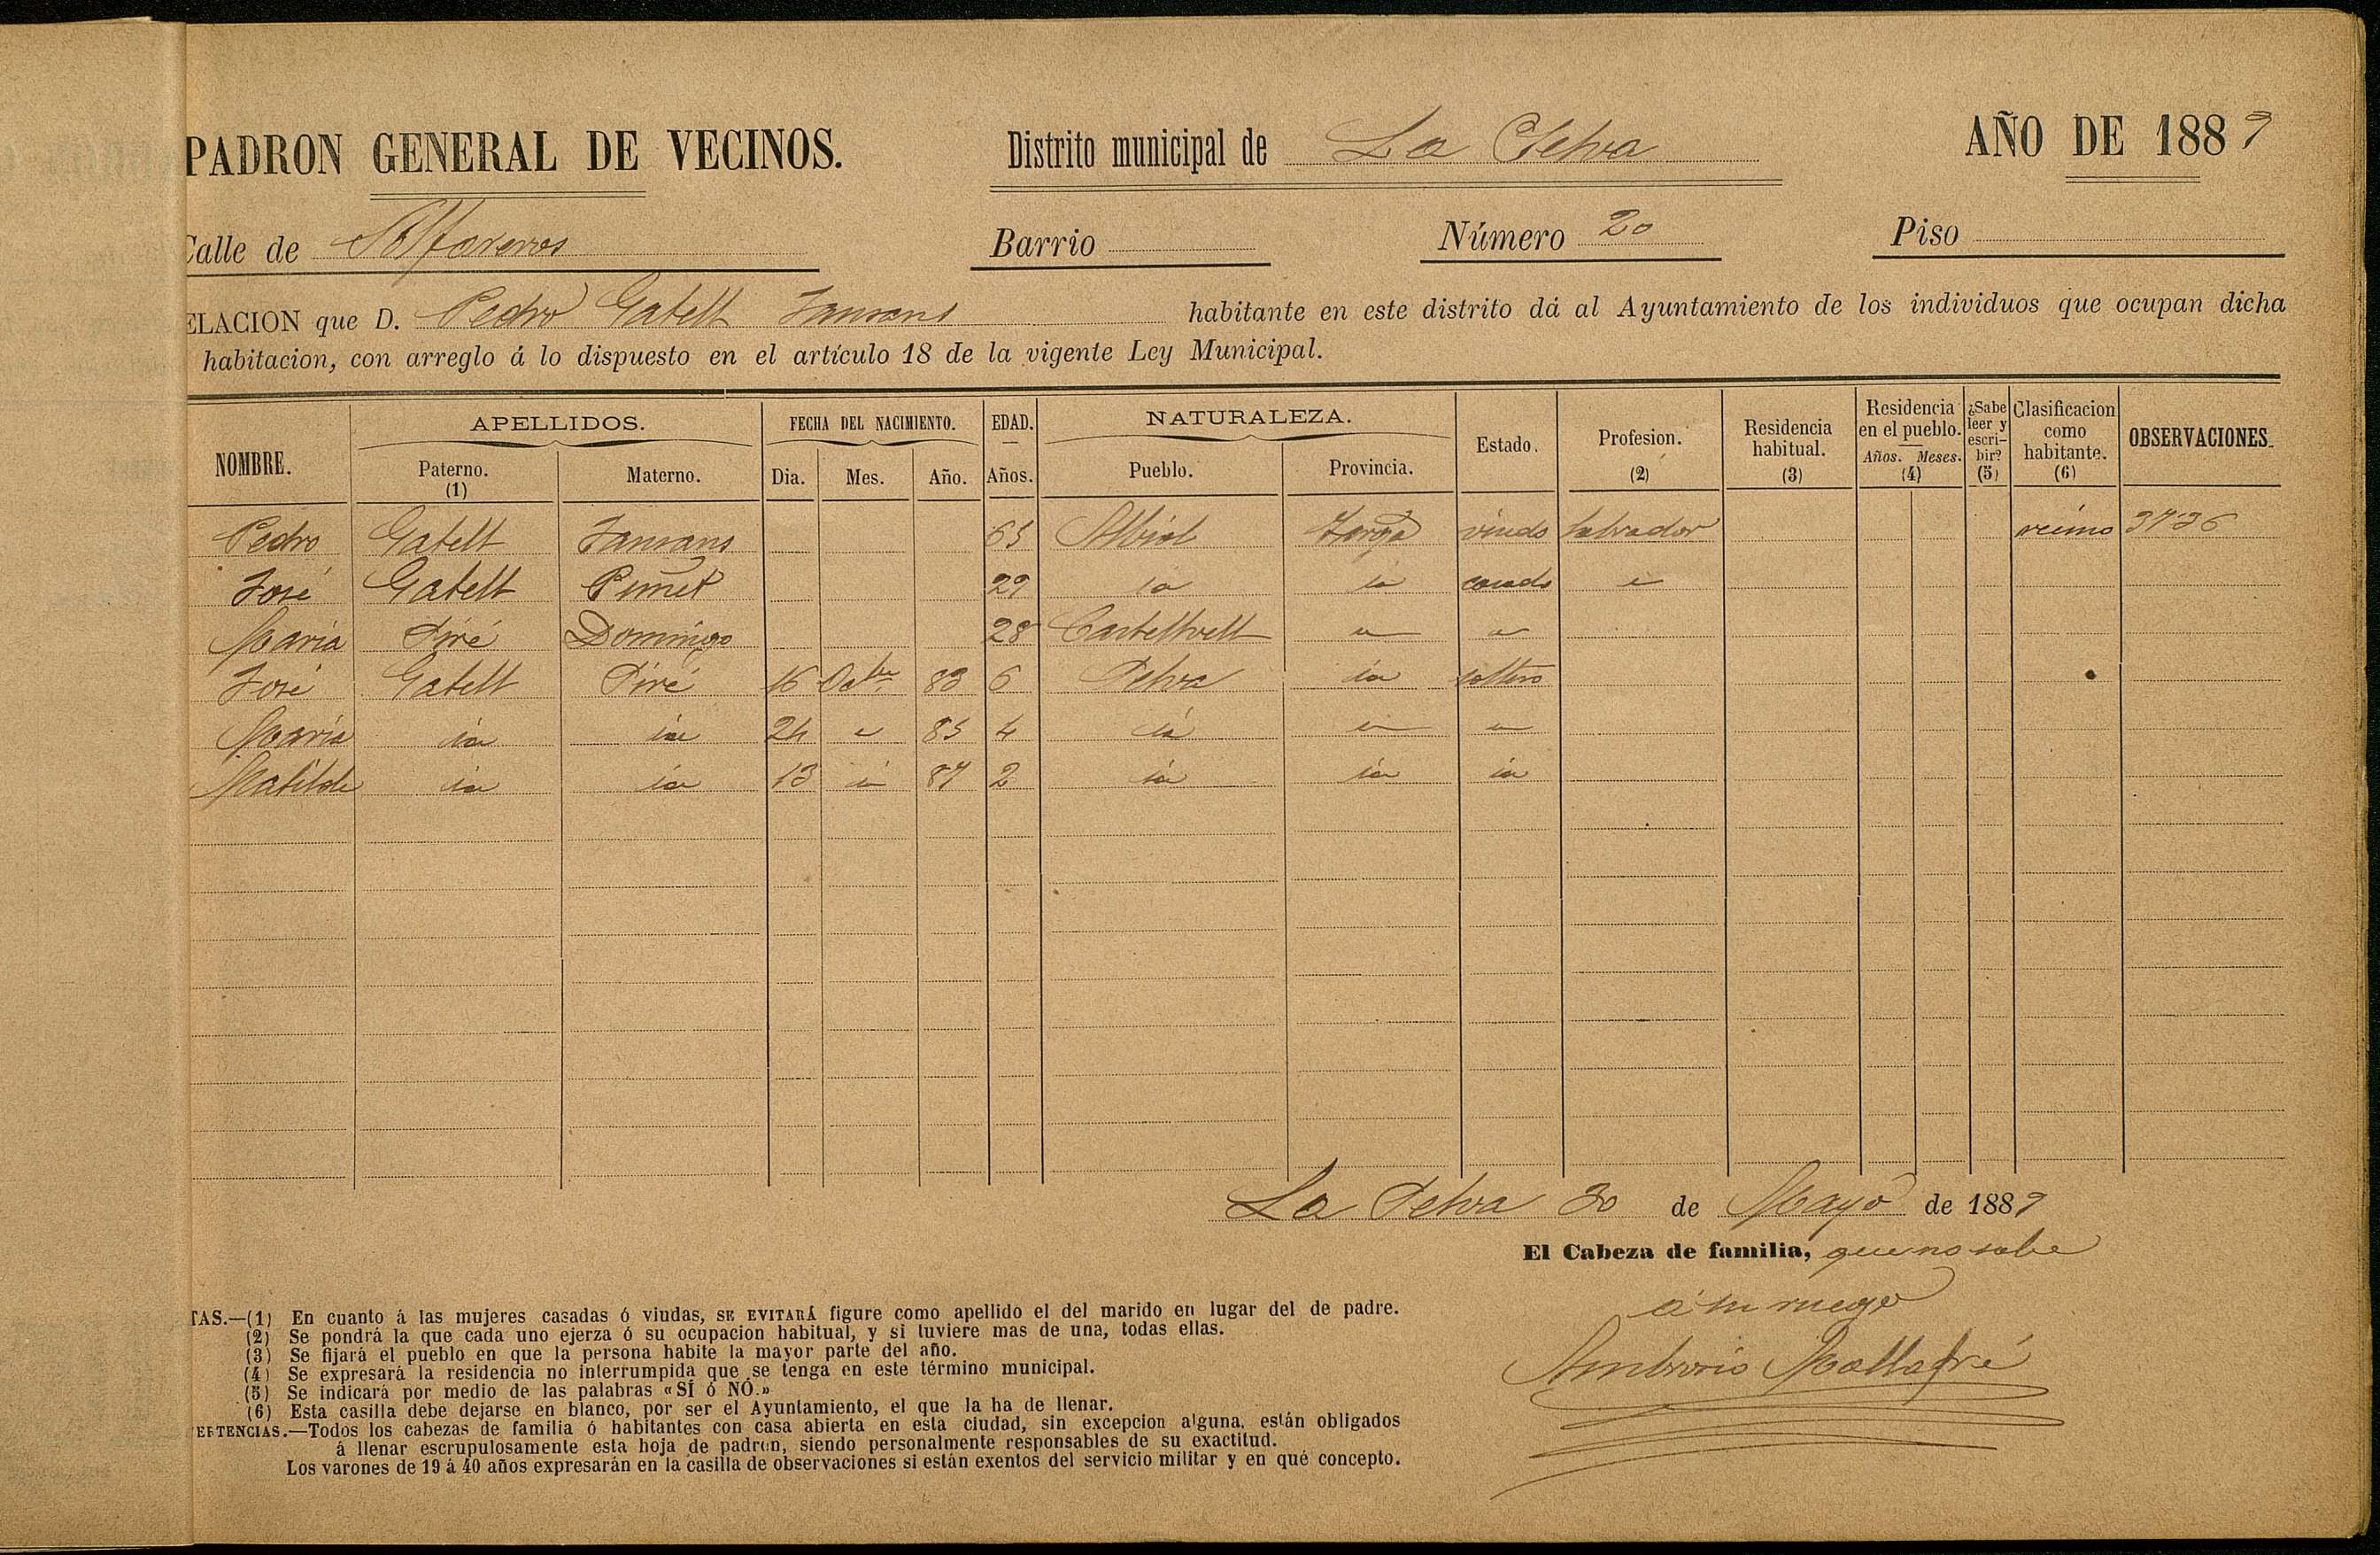 PADRON GENERAL DE VECINOS. Distrito municipal de La Selva AÑO DE 1889
Calle de Alfareros Barrio Número 20 Piso
ELACION que D. Pedro Gatell habitante en este distrito dá al Ayuntamiento de los individuos que ocupan dicha
habitacion, con arreglo á lo dispuesto en el artículo 18 de la vigente Ley Municipal.
NOMBRE. APELLIDOS. FECHA DEL NACIMIENTO. EDAD. NATURALEZA. Estado. Profesion. (2) Residencia habitual. (3) Residencia en el pueblo. Años. Meses. (4) ¿Sabe leer y escribir? (5) Clasificacion como habitante. (6) OBSERVACIONES.
Paterno. (1) Materno. Dia. Mes. Año. Años. Pueblo. Provincia.
Pedro Gatell 65 Albiol viudo labrador vecino 3736
José Gatell 29 id id casado
María Piré Domingo 28 Castellvell
José Gatell Piré 16 Octbre 83 6 Selva id soltero
María id id 24 85 4 id
Matilde id id 13 id 87 2 id id id
La Selva 30 de Mayo de 1889
El Cabeza de familia, que no sabe
á su ruego
Ambrosio Mallafré
TAS.—(1) En cuanto á las mujeres casadas ó viudas, SE EVITARÁ figure como apellido el del marido en lugar del de padre.
(2) Se pondrá la que cada uno ejerza ó su ocupacion habitual, y si tuviere mas de una, todas ellas.
(3) Se fijará el pueblo en que la persona habite la mayor parte del año.
(4) Se expresará la residencia no interrumpida que se tenga en este término municipal.
(5) Se indicará por medio de las palabras «SÍ ó NÓ.»
(6) Esta casilla debe dejarse en blanco, por ser el Ayuntamiento, el que la ha de llenar.
ERTENCIAS.—Todos los cabezas de familia ó habitantes con casa abierta en esta ciudad, sin excepcion alguna, están obligados
á llenar escrupulosamente esta hoja de padron, siendo personalmente responsables de su exactitud.
Los varones de 19 á 40 años expresarán en la casilla de observaciones si están exentos del servicio militar y en qué concepto.